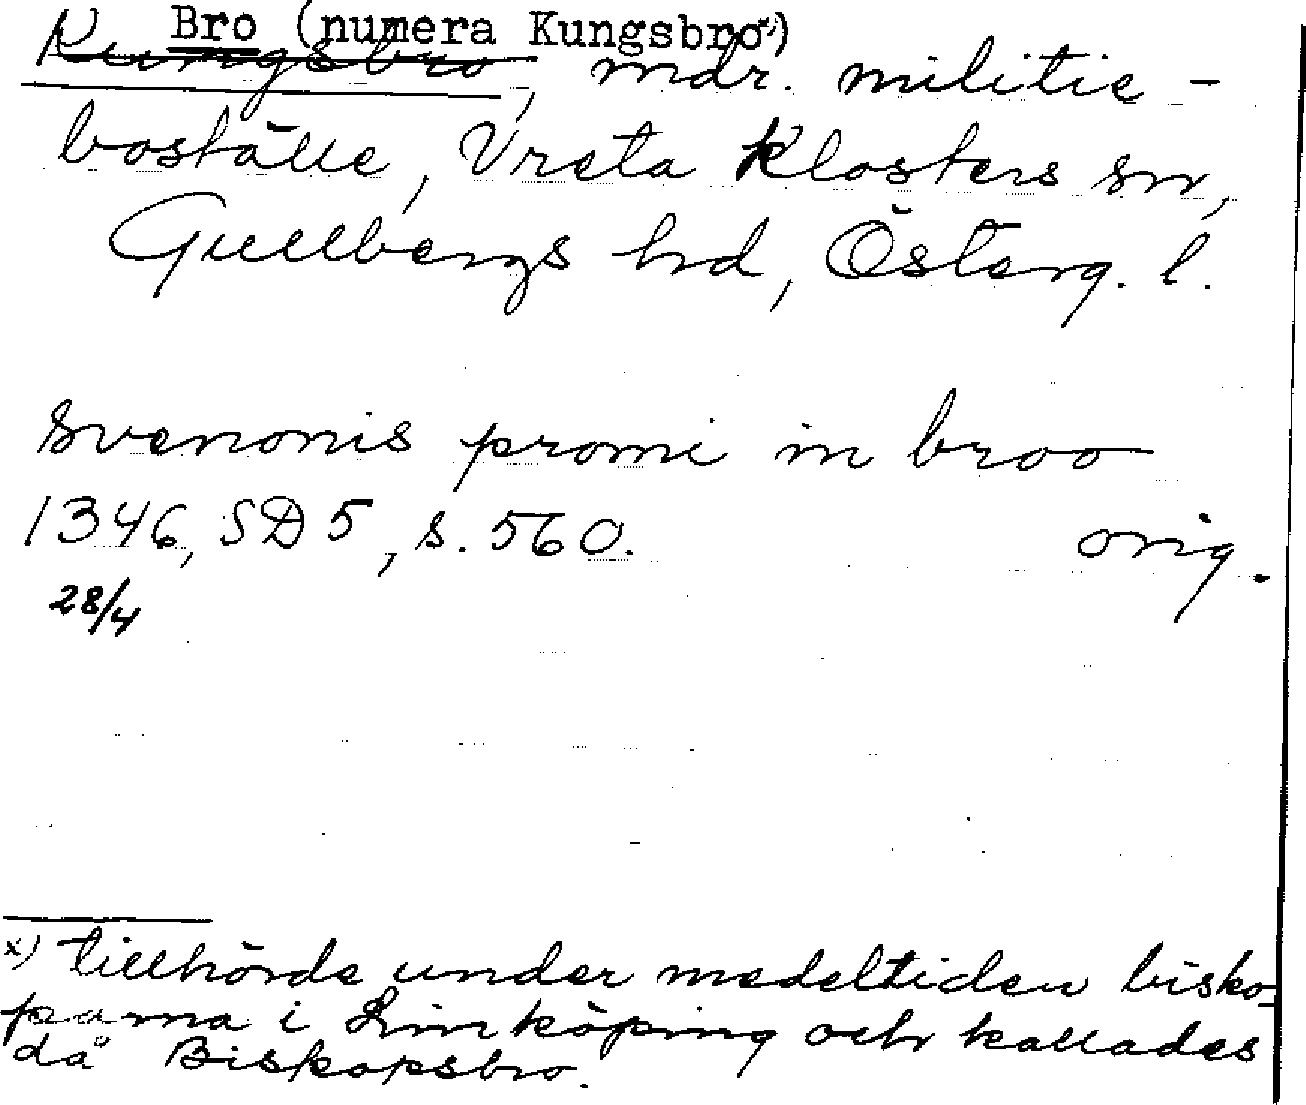 Bro (numera Kungsbro x))
Kungsbro, mdr. militie-
boställe, Vreta Klosters sn,
Gullbergs hd, Österg. l.
svenonis promi in broo
1346, SD 5, s. 560. orig.
28/4
x) tillhörde under medeltiden bisko-
parna i Linköping och kallades
då Biskopsbro.